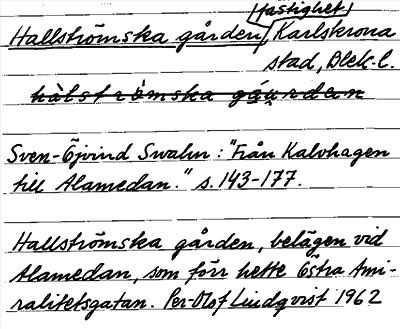 (fastighet)
Hallströmska gården, Karlskrona
stad, Blek. l.
hàlstrømska gáụrdạn
Sven-Öjvind Swahn: "Från Kalvhagen
till Alamedan." s. 143-177.
Hallströmska gården, belägen vid
Alamedan, som förr hette Östra Ami-
ralitetsgatan. Per-Olof Lindqvist 1962